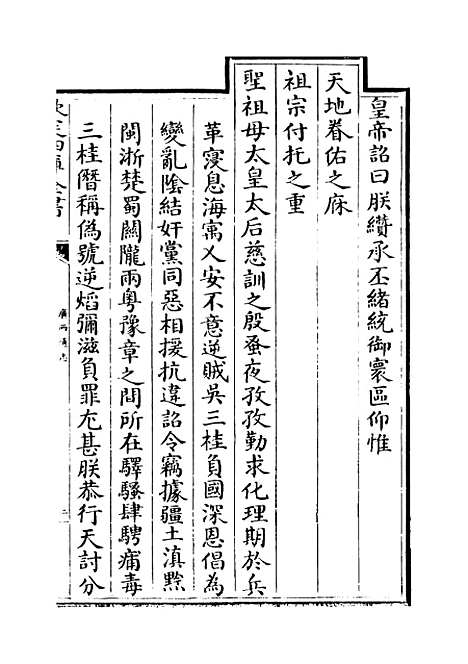 皇帝詔曰朕纘承丕緒統御寰區仰惟
天地眷佑之庥
祖宗付托之重
聖祖母太皇太后慈訓之殷蚤夜孜孜勤求化理期於兵
革寖息海㝢乂安不意逆賊吳三桂負國深恩倡為
變亂陰結奸黨同惡相援抗違詔令竊據疆土滇黔
閩浙楚蜀關隴兩粤豫章之間所在驛騷肆騁痡毒
三桂僭稱偽號逆熖彌滋負罪尤甚朕恭行天討分
欽定四庫全書
廣西通志